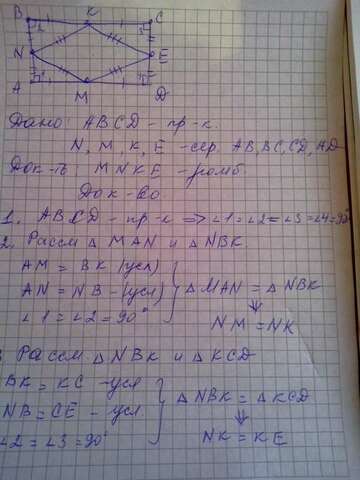 B K C
2 3
N E
1 4
A M D
Дано: ABCD – пр-к.
N, M, K, E – сер. AB, BC, CD, AD
Док-ть: MNKE – ромб.
Док-во.
1. ABCD – пр-к => ∠1 = ∠2 = ∠3 = ∠4 = 90°
2. Рассм △ MAN и △ NBK.
AM = BK (усл)
AN = NB – (усл) } △ MAN = △ NBK
∠1 = ∠2 = 90° ⇓
NM = NK
Рассм △ NBK и △ KCD
BK = KC – усл
NB = CE – усл. } △ NBK = △ KCD
∠2 = ∠3 = 90° ⇓
NK = KE